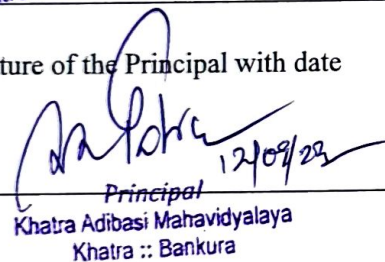 ture of the Principal with date
12/09/23
Principal
Khatra Adibasi Mahavidyalaya
Khatra :: Bankura